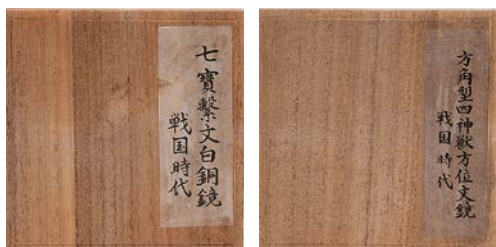 七寳繋文白銅鏡
戦国時代
方角型四神獣方位文鏡
戦国時代